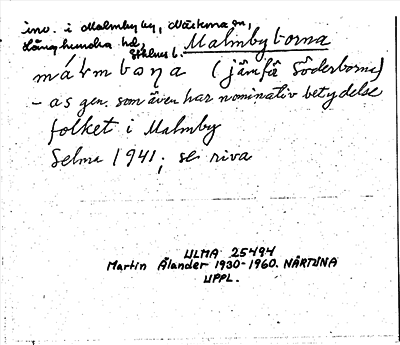 inv. i Malmby by, Närtuna sn,
Långhundra hd,
Sthlms l. Malmbyborna
málmbona (jämför Söderborna)
- as gen. som även har nominativ betydelse
folket i Malmby
Selma 1941, se riva
ULMA 25494
Martin Ålander 1930-1960. NÄRTUNA
UPPL.